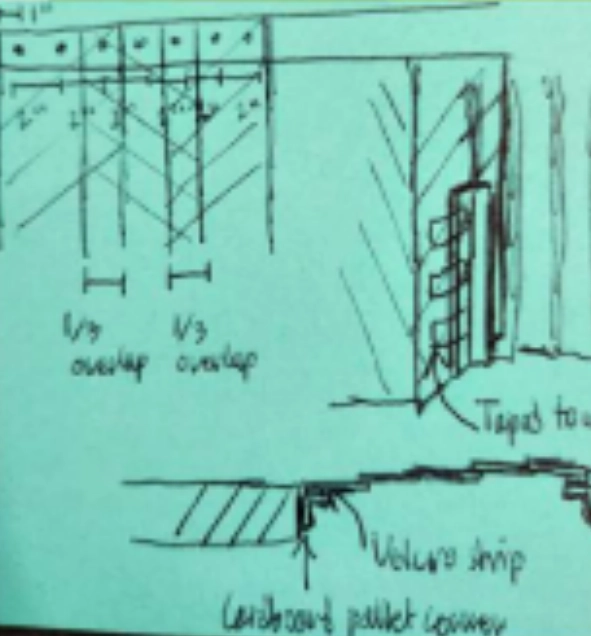 1"
2" 2" 2" 2"
1/3 1/3
overlap overlap
Taped to
Velcro strip
Cardboard pallet corner